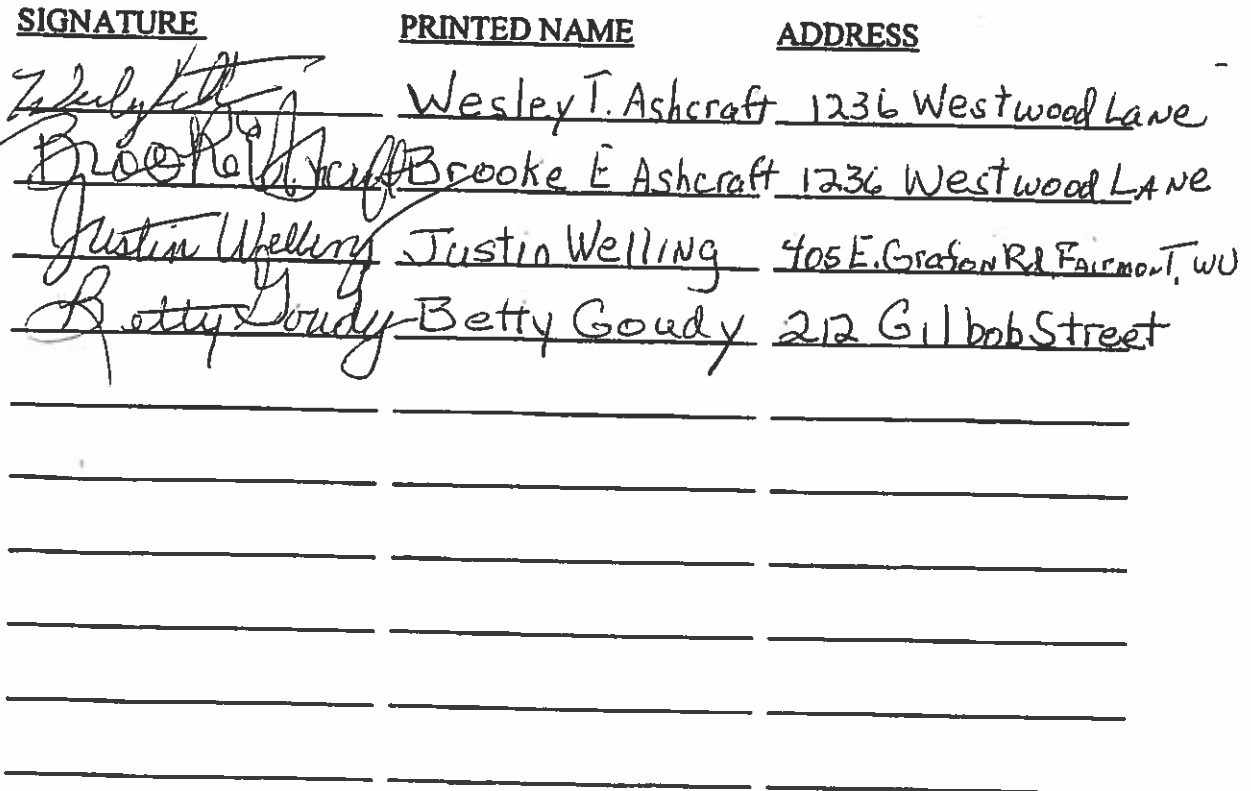 SIGNATURE PRINTED NAME ADDRESS
Wesley T. Ashcraft 1236 Westwood Lane
Brooke Brooke E Ashcraft 1236 Westwood LANe
Justin Welling Justin Welling 405 E. Grafon Rd FAirmonT, WV
Betty Goudy Betty Goudy 212 Gilbob Street